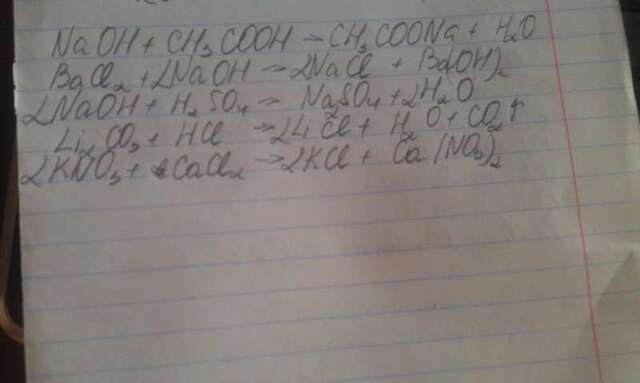 NaOH + CH₃COOH → CH₃COONa + H₂O
BaCl₂ + 2NaOH → 2NaCl + Ba(OH)₂
2NaOH + H₂SO₄ → Na₂SO₄ + 2H₂O
Li₂CO₃ + HCl → 2LiCl + H₂O + CO₂↑
2KNO₃ + CaCl₂ → 2KCl + Ca(NO₃)₂